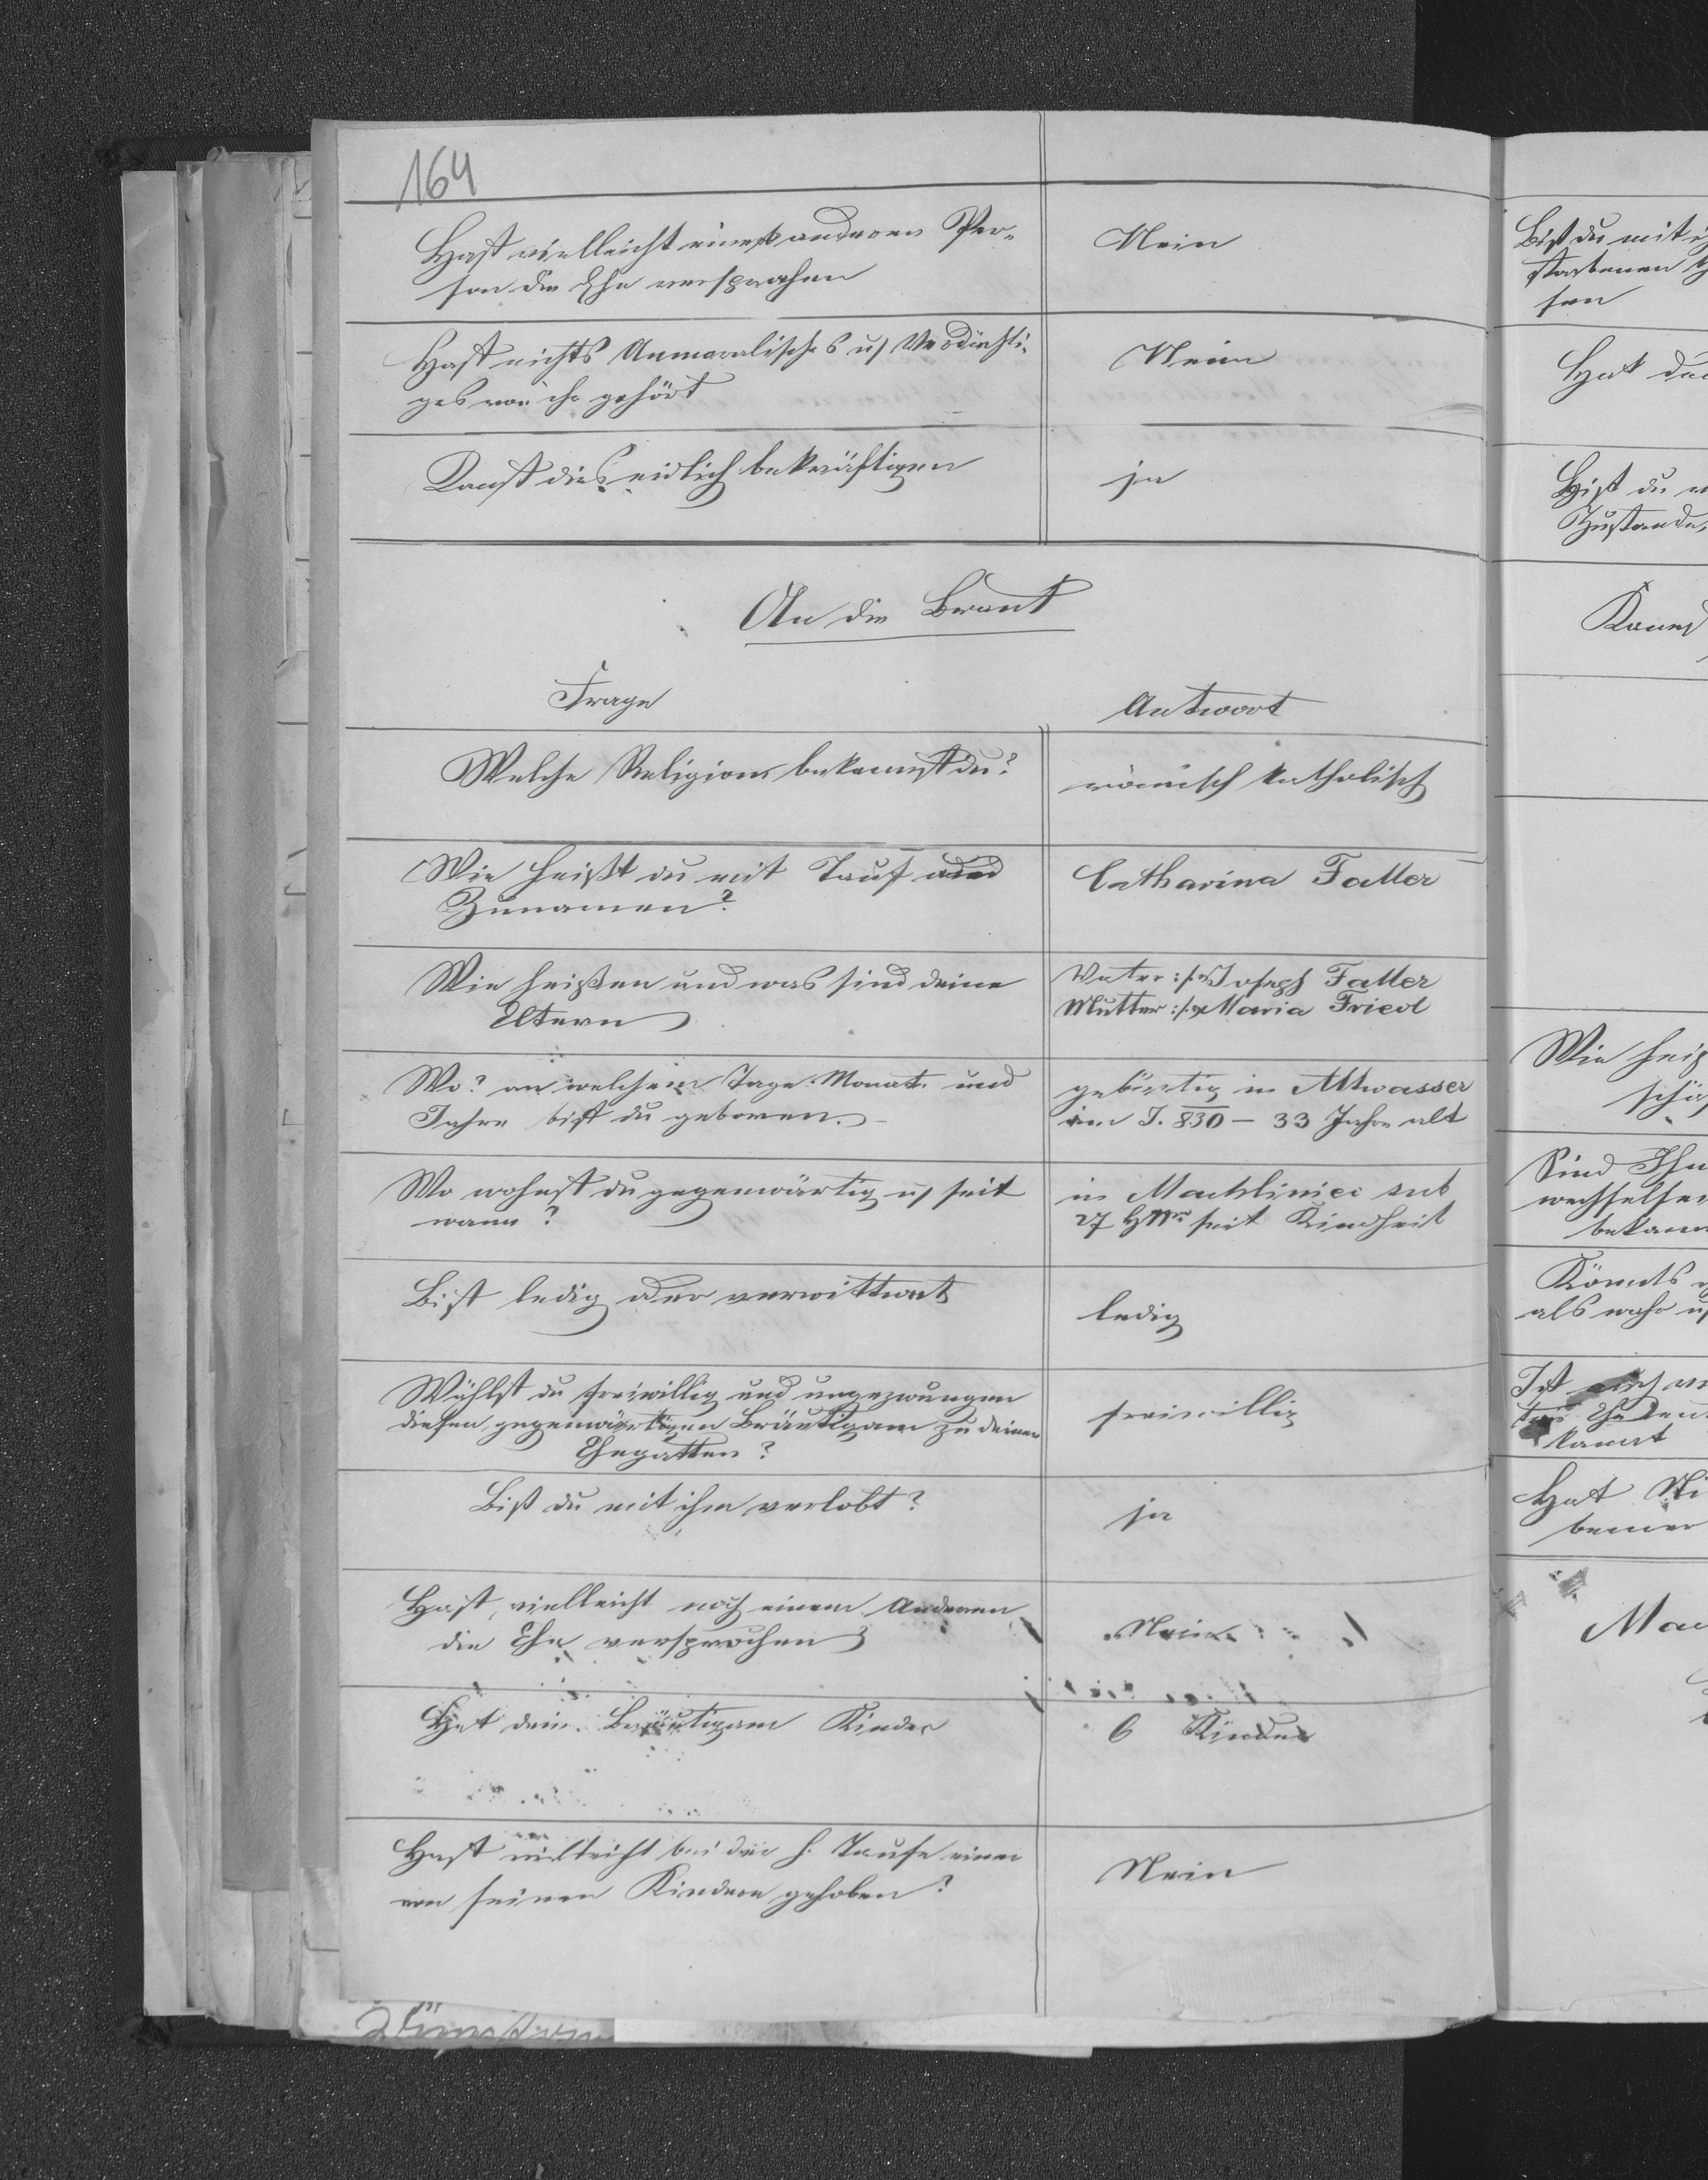 164
Hast vielleicht einer anderen Per-
son die Ehe versprochen
Nein
Hast nichts Unmoralisches u. Verdächti-
ges von ihr gehört
Nein
Kanst dies eidlich bekräftigen
ja
An die Braut
Frage
Antwort
Welche Religion bekennst du?
römisch katholisch
Wie heißt du mit Tauf und
Zunamen?
Catharina Faller
Wie heißen und was sind deine
Eltern
Vater: Joseph Faller
Mutter: Maria Friedl
Wo? an welchem Tage Monate und
Jahre bist du geboren.
gebürtig in Altwasser
im J. 830 – 33 Jahr alt
Wo wohnst du gegenwärtig u. seit
wann?
in Machliniec sub
27 HNr seit Kindheit
Bist ledig oder verwittwet
ledig
Wählst du freiwillig und ungezwungen
diesen gegenwärtigen Bräutigam zu deinen
Ehegatten?
freiwillig
Bist du mit ihm verlobt?
ja
Hast vielleicht noch einem Anderen
die Ehe versprochen
Nein
Hat dein Bräutigam Kinder
6 Kinder
Hast vielleicht bei der h. Taufe einen
von seinen Kindern gehoben?
Nein
Bist du mit
storbenen
sen
Hat
Bist du
Zustande,
Wie heiß
Sind Ihn
wechselsei
bekann
Könnts
als wahr u.
Ist
kannt
Hat
Mac